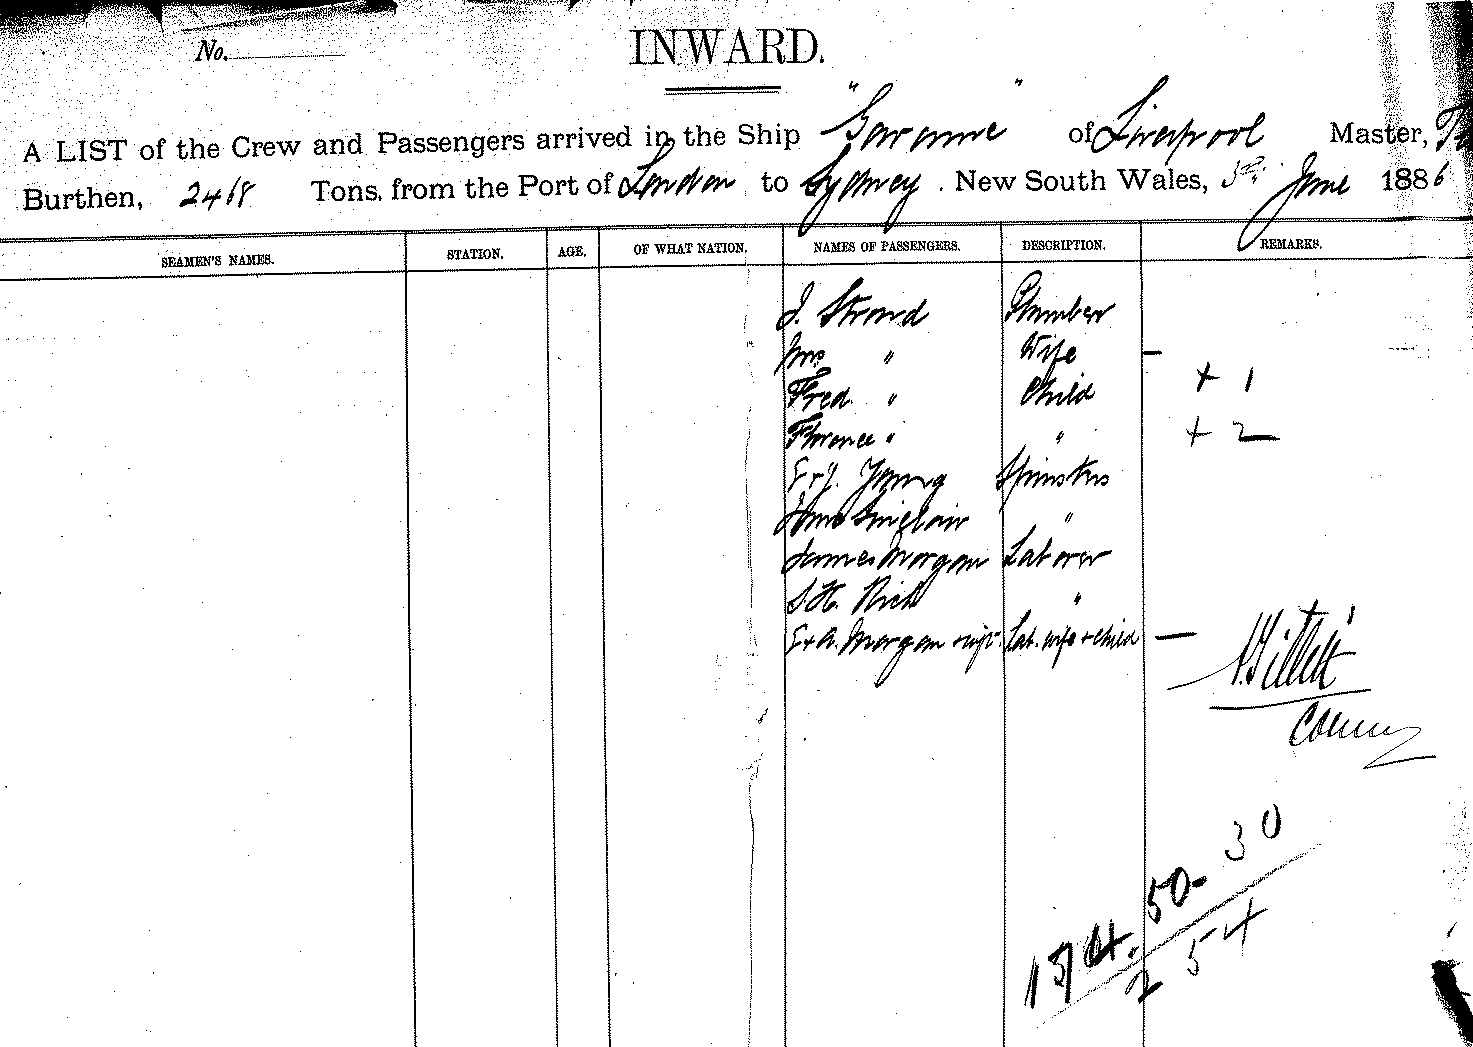 No.
INWARD.
A LIST of the Crew and Passengers arrived in the Ship " " of Liverpool Master,
Burthen, 2468 Tons, from the Port of London to Sydney, New South Wales, June 1886
SEAMEN'S NAMES. STATION. AGE. OF WHAT NATION. NAMES OF PASSENGERS. DESCRIPTION. REMARKS.
J. Strond Plumber
Mrs " Wife —
Fred " Child + 1
Florence " " + 2
E & J. Young Spinsters
Sinclair "
James Morgan Laborer
S H. Rich "
E & A. Morgan Lab. wife + child —
30
174. 50-
254